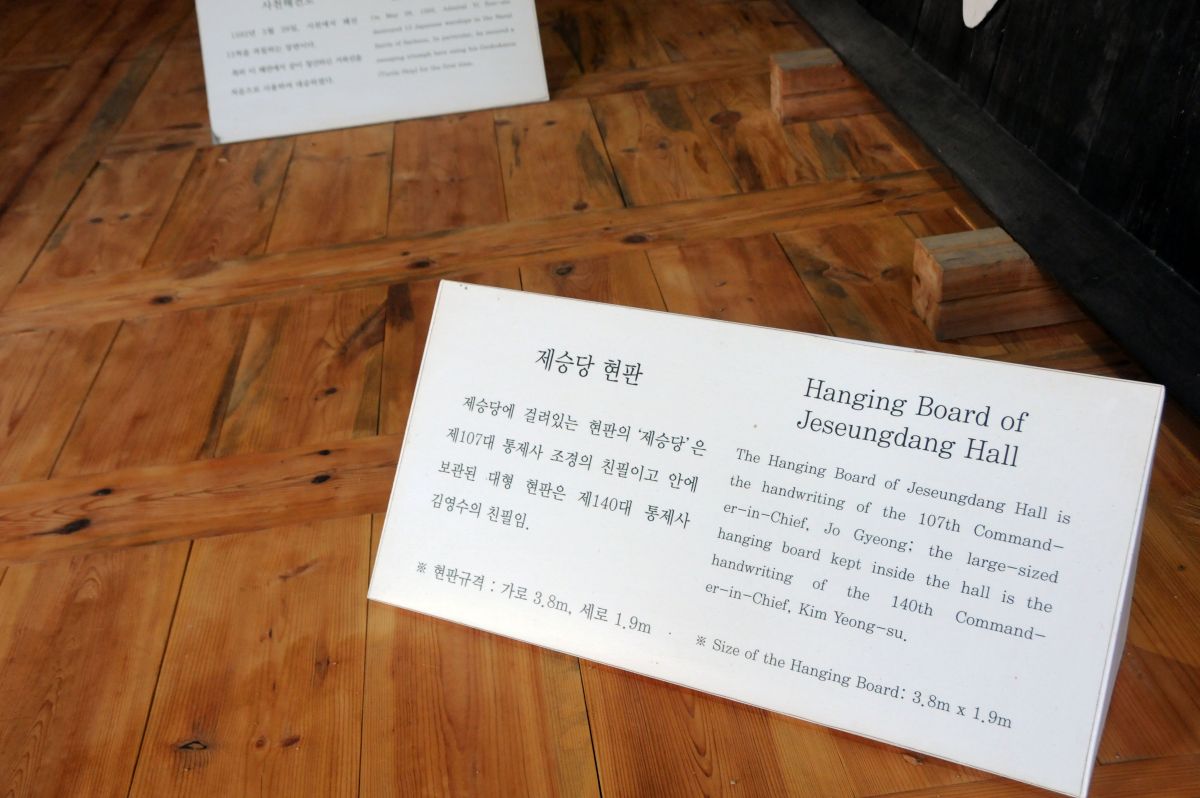 사천해전도
1592년 5월 29일, 사천에서 왜선
13척을 격침하는 장면이다.
특히 이 해전에서 굳이 창건하신 거북선을
처음으로 사용하여 대승하였다.
On May 29, 1592, Admiral Yi Sun-sin
destroyed 13 Japanese warships in the Naval
Battle of Sacheon. In particular, he secured a
sweeping triumph here using his Geobukseon
(Turtle Ship) for the first time.
제승당 현판
제승당에 걸려있는 현판의 ‘제승당’은
제107대 통제사 조경의 친필이고 안에
보관된 대형 현판은 제140대 통제사
김영수의 친필임.
※ 현판규격 : 가로 3.8m, 세로 1.9m
Hanging Board of
Jeseungdang Hall
The Hanging Board of Jeseungdang Hall is
the handwriting of the 107th Command-
er-in-Chief, Jo Gyeong; the large-sized
hanging board kept inside the hall is the
handwriting of the 140th Command-
er-in-Chief, Kim Yeong-su.
※ Size of the Hanging Board: 3.8m x 1.9m